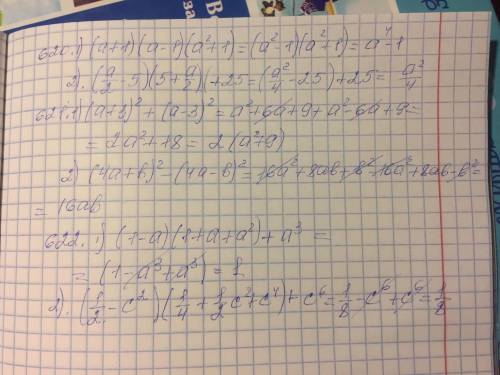 620.1) (a+1)(a-1)(a²+1)=(a²-1)(a²+1)=a⁴-1
2). (a/2-5)(5+a/2)(+25=(a²/4-25)+25=a²/4
621.1) (a+3)²+(a-3)²=a²+6a+9+a²-6a+9=
=2a²+18=2(a²+9)
2) (4a+b)²-(4a-b)²=16a²+8ab+b²-16a²+8ab-b²=
=16ab
622. 1) (1-a)(1+a+a²)+a³=
=(1-a³+a³)=1
2). (1/2-c²)(1/4+1/2c²+c⁴)+c⁶=1/8-c⁶+c⁶=1/8